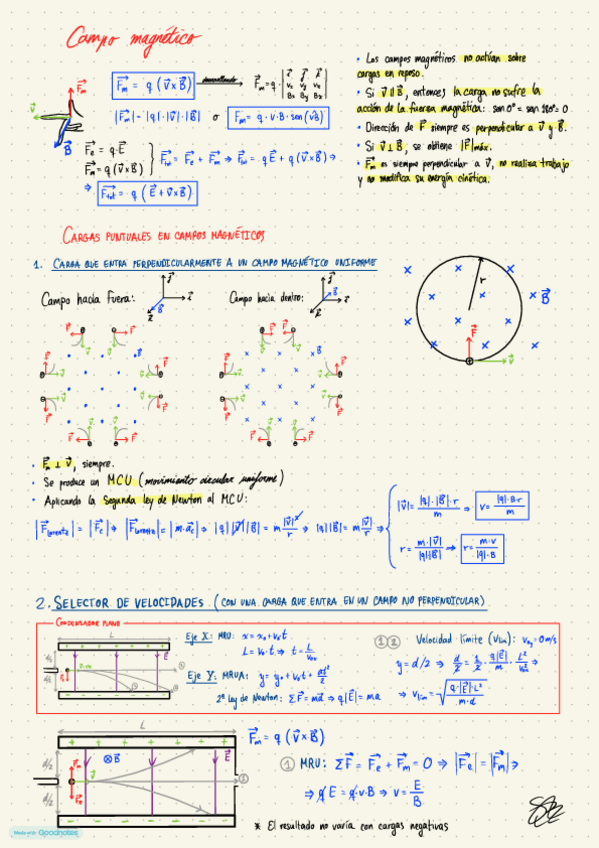 Campo magnético
F⃗m = q (v⃗ x B⃗)
F⃗m = q · | i⃗ j⃗ k⃗ |
| Vx Vy Vz |
| Bx By Bz |
|F⃗m| = |q| · |v⃗| · |B⃗| o Fm = q · v · B · sen(v̂B)
F⃗m
v⃗
B⃗
F⃗e = q · E⃗
F⃗m = q (v⃗ x B⃗)
F⃗tot = F⃗e + F⃗m ⇒ F⃗tot = q E⃗ + q (v⃗ x B⃗) ⇒
⇒ F⃗tot = q (E⃗ + v⃗ x B⃗)
• Los campos magnéticos no actúan sobre
cargas en reposo.
• Si v⃗ ∥ B⃗, entonces la carga no sufre la
acción de la fuerza magnética: sen 0° = sen 180° = 0
• Dirección de F⃗ siempre es perpendicular a v⃗ y B⃗.
• Si v⃗ ⊥ B⃗, se obtiene |F⃗| máx.
• F⃗m es siempre perpendicular a v⃗, no realiza trabajo
y no modifica su energía cinética.
CARGAS PUNTUALES EN CAMPOS MAGNÉTICOS
1. CARGA QUE ENTRA PERPENDICULARMENTE A UN CAMPO MAGNÉTICO UNIFORME
Campo hacia fuera:
Campo hacia dentro:
r
B⃗
F⃗
v⃗
• F⃗m ⊥ v⃗, siempre.
• Se produce un MCU (movimiento circular uniforme)
• Aplicando la segunda ley de Newton al MCU:
|F⃗Lorentz| = |F⃗c| ⇒ |F⃗Lorentz| = |m · a⃗c| ⇒ |q| |v⃗| |B⃗| = m |v⃗|²/r ⇒ |q| |B⃗| = m |v⃗|/r ⇒
|v⃗| = |q| · |B⃗| · r / m ⇒ v = |q| · B · r / m
r = m · |v⃗| / |q| |B⃗| ⇒ r = m · v / |q| · B
2. SELECTOR DE VELOCIDADES. (CON UNA CARGA QUE ENTRA EN UN CAMPO NO PERPENDICULAR)
CONDENSADOR PLANO
L
d/2
d/2
E⃗
Eje X: MRU: x = x₀ + v₀t
L = v₀ · t ⇒ t = L / v₀x
Eje Y: MRUA: y = y₀ + v₀t + at²/2
2ª ley de Newton: ΣF⃗ = ma⃗ ⇒ q|E⃗| = ma
① ② Velocidad límite (Vlím): v₀y = 0 m/s
y = d/2 ⇒ d/2 = 1/2 · q|E⃗|/m · L²/v₀x² ⇒
⇒ vlím = √(q · |E⃗| · L² / m · d)
L
d/2
d/2
⊗ B⃗
E⃗
F⃗m
v⃗
F⃗e
①
F⃗m = q (v⃗ x B⃗)
① MRU: ΣF⃗ = F⃗e + F⃗m = 0 ⇒ |F⃗e| = |F⃗m| ⇒
⇒ q E = q · v · B ⇒ v = E / B
* El resultado no varía con cargas negativas
Made with Goodnotes